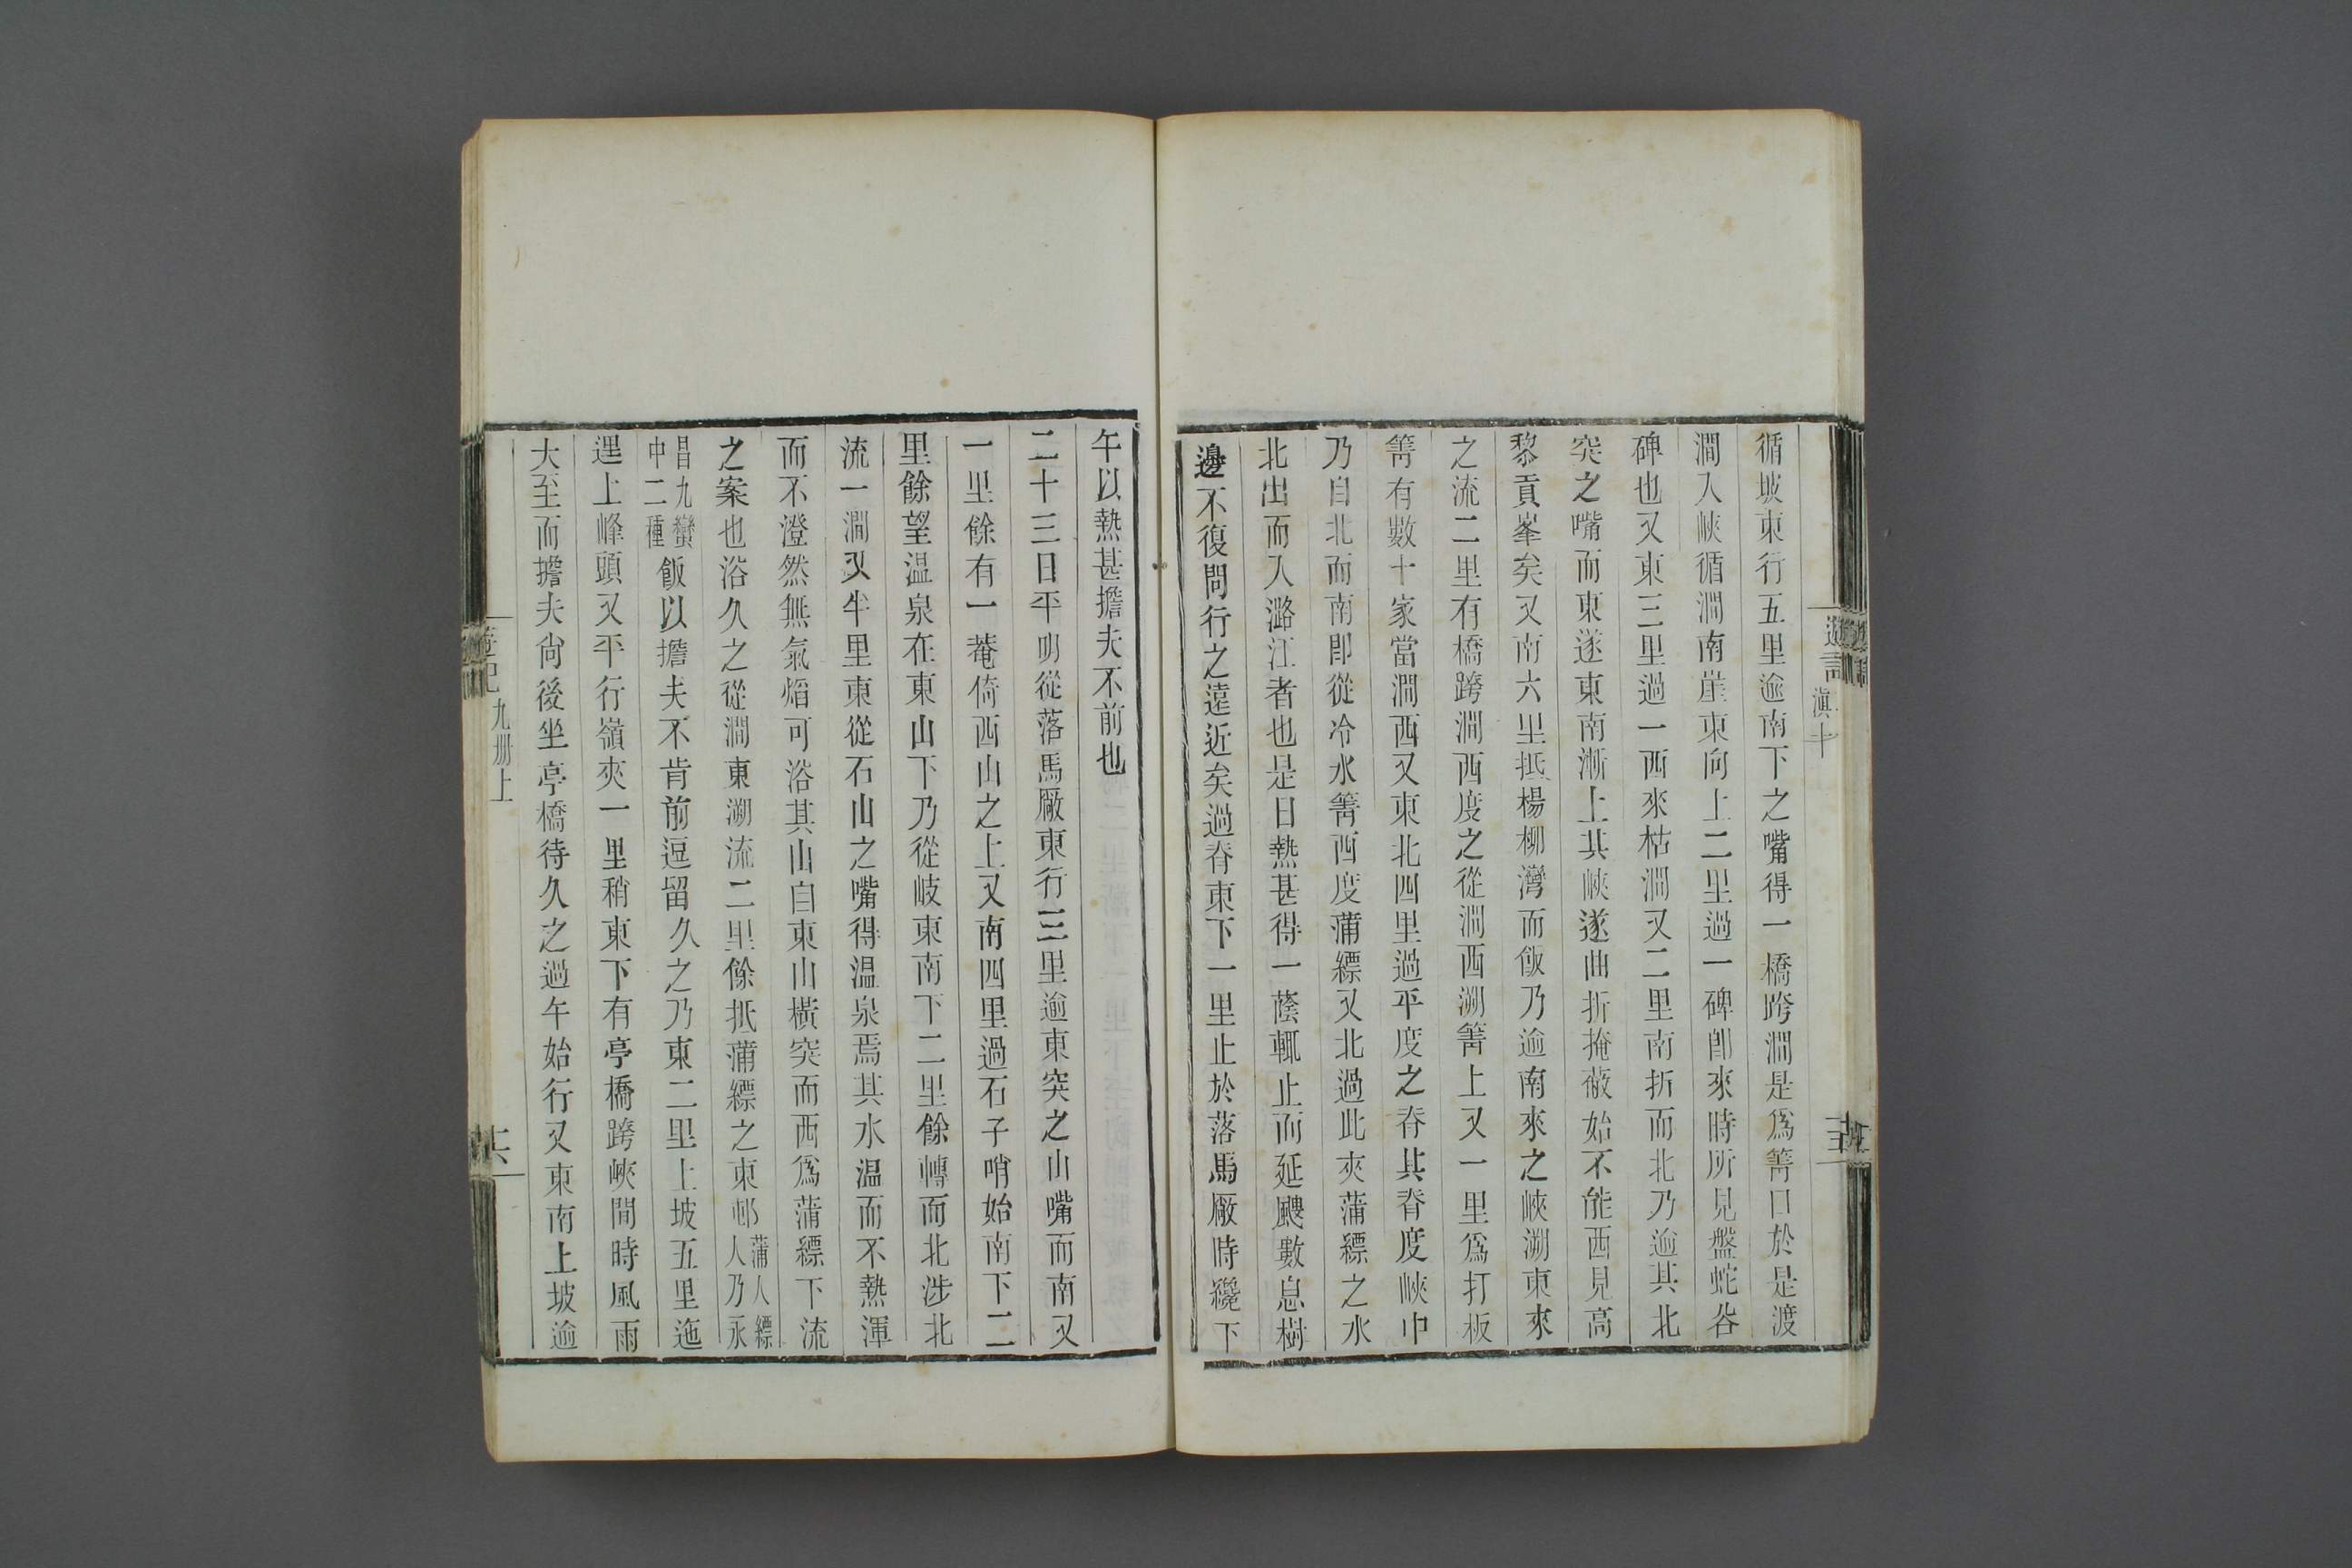 遊記
滇十
循坡東行五里逾南下之嘴得一橋跨澗是爲箐口於是渡
澗入峽循澗南崖東向上二里過一碑卽來時所見盤蛇谷
碑也又東三里過一西來枯澗又二里南折而北乃逾其北
突之嘴而東遂東南漸上其峽遂曲折掩蔽始不能西見高
黎貢峯矣又南六里抵楊柳灣而飯乃逾南來之峽溯東來
之流二里有橋跨澗西度之從澗西溯箐上又一里爲打板
箐有數十家當澗西又東北四里過平度之脊其脊度峽中
乃自北而南卽從冷水箐西度蒲縹又北過此夾蒲縹之水
北出而入潞江者也是日熱甚得一蔭輒止而延颸數息樹
邊不復問行之遠近矣過脊東下一里止於落馬厰時纔下
午以熱甚擔夫不前也
二十三日平明從落馬厰東行三里逾東突之山嘴而南又
一里餘有一菴倚西山之上又南四里過石子哨始南下二
里餘望温泉在東山下乃從岐東南下二里餘轉而北涉北
流一澗又半里東從石山之嘴得温泉焉其水温而不熱渾
而不澄然無氣熖可浴其山自東山橫突而西爲蒲縹下流
之案也浴久之從澗東溯流二里餘抵蒲縹之東邨蒲人縹人乃永
昌九蠻中二種飯以擔夫不肯前逗留久之乃東二里上坡五里迤
邐上峰頭又平行嶺夾一里稍東下有亭橋跨峽間時風雨
大至而擔夫尙後坐亭橋待久之過午始行又東南上坡逾
遊記
九册上